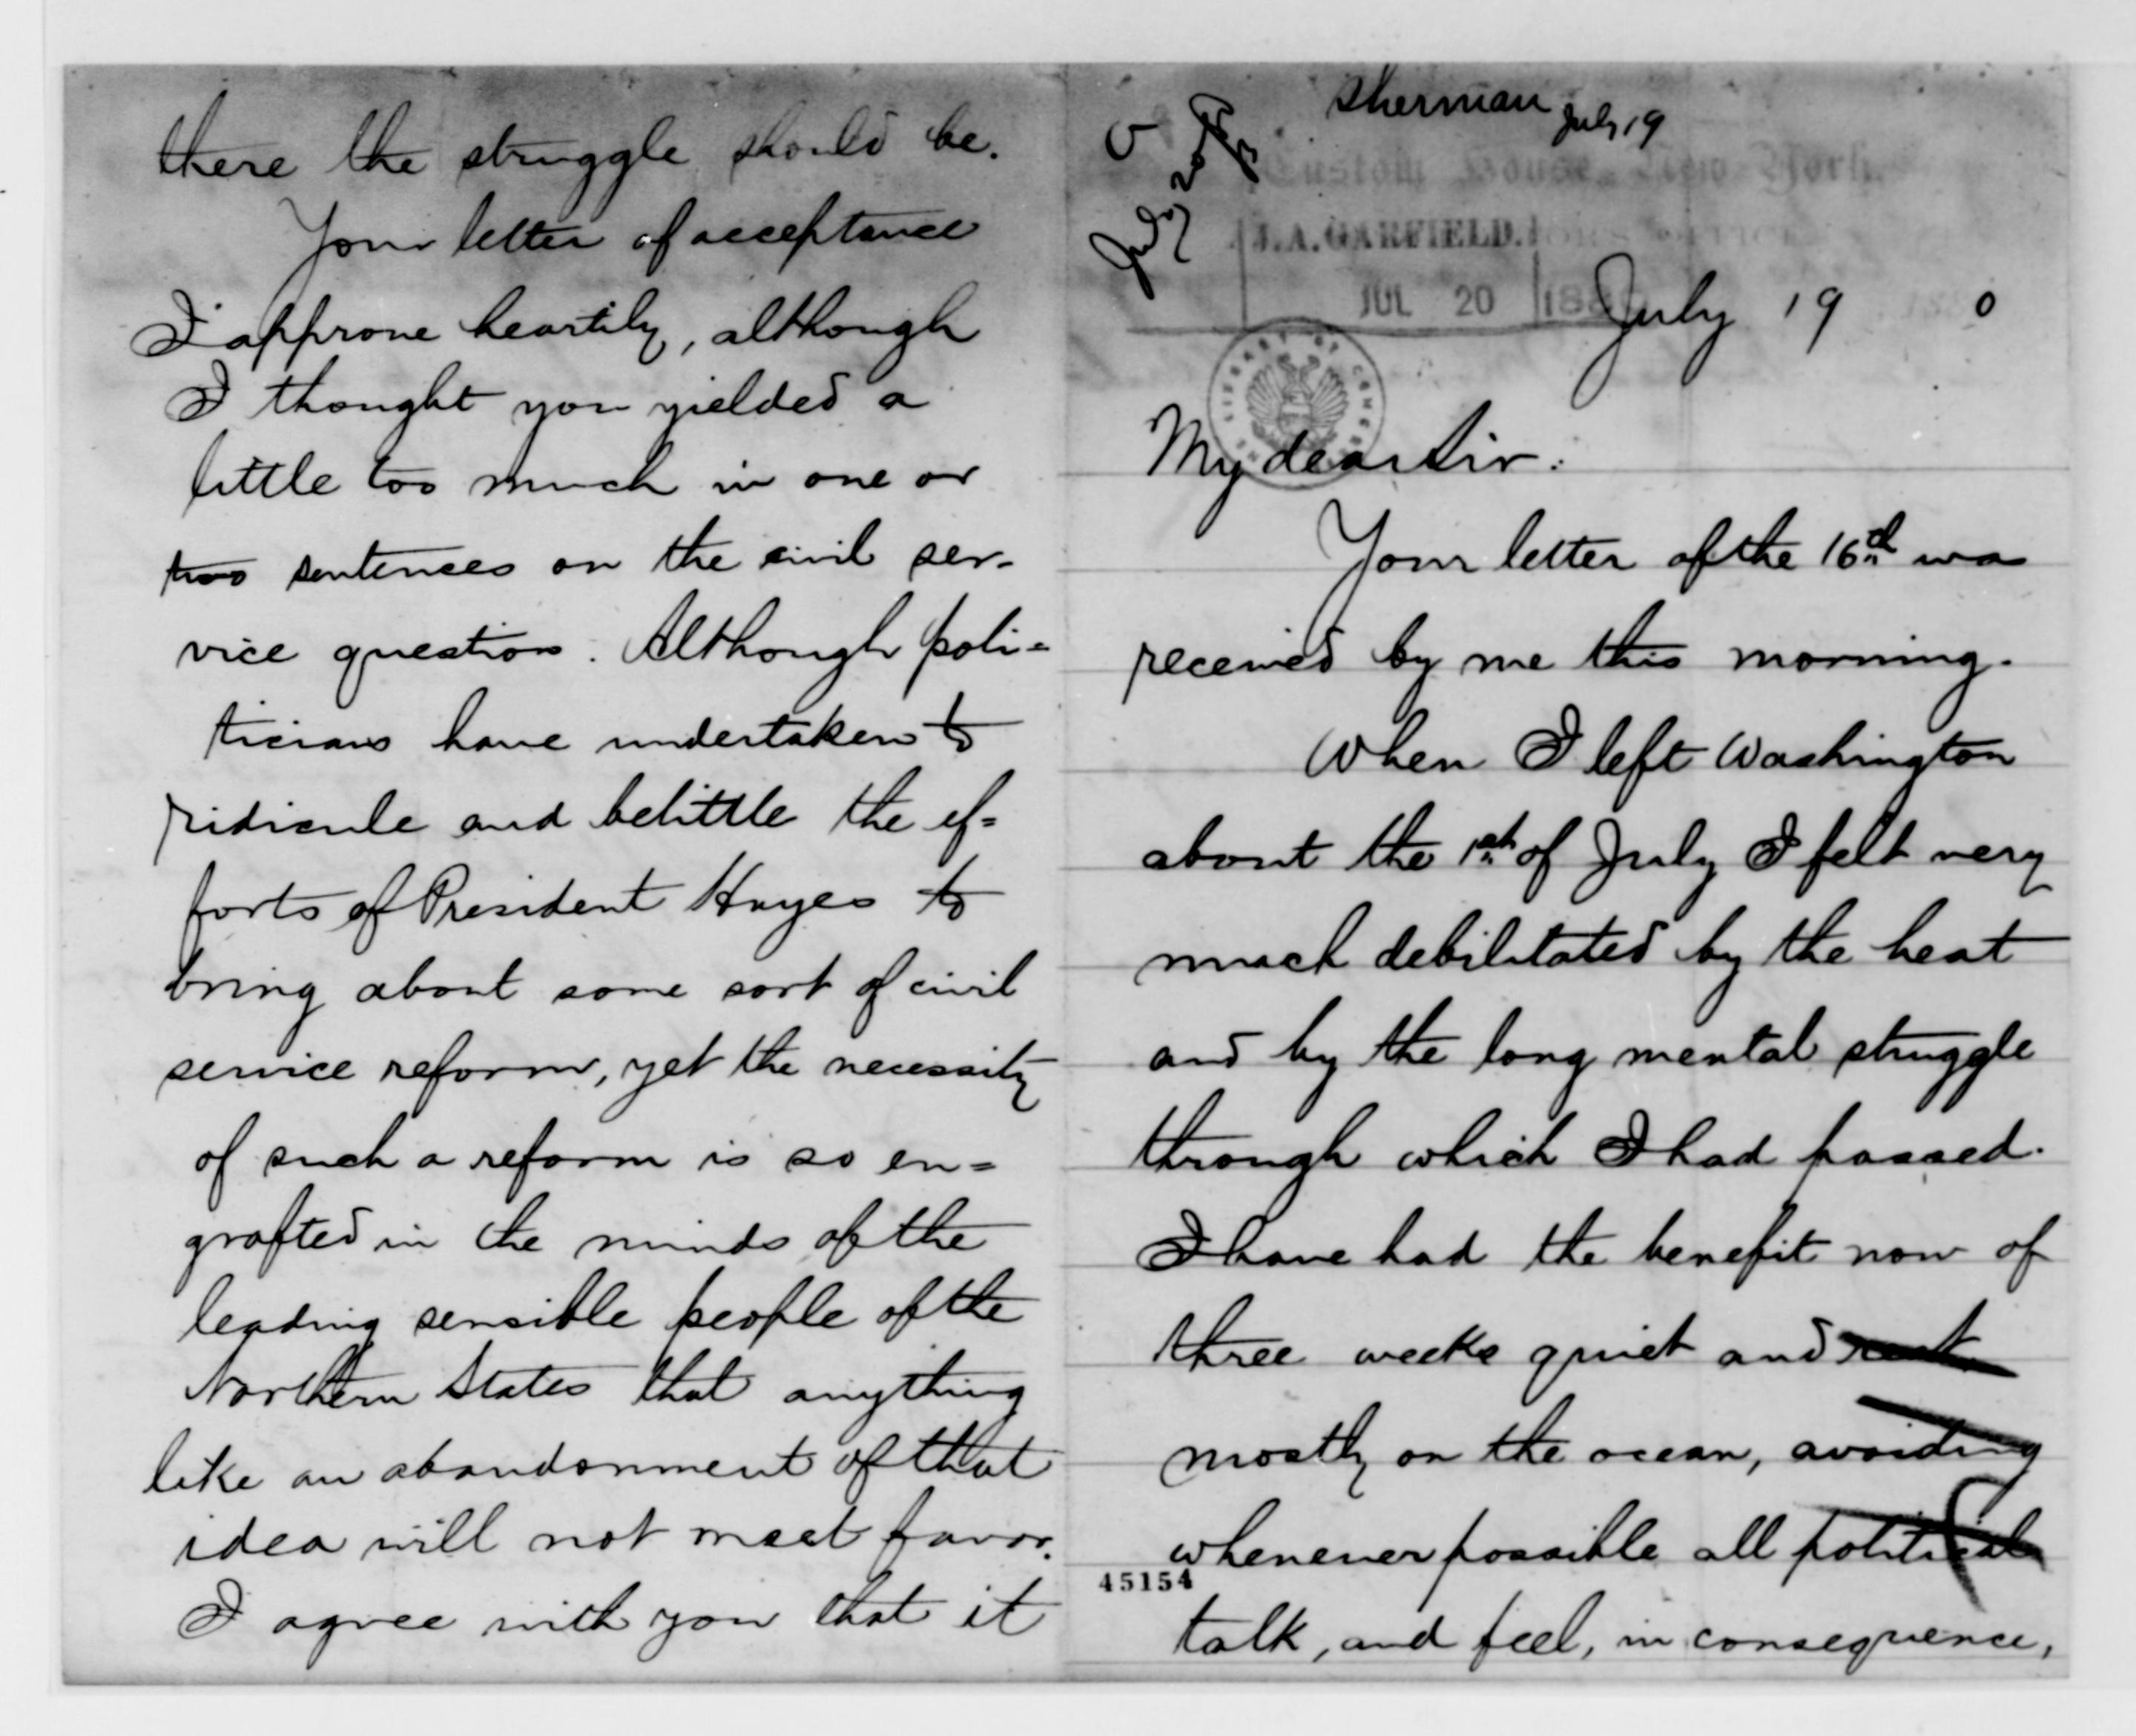 there the struggle should be.
Your letter of acceptance
I approve heartily, although
I thought you yielded a
little too much in one or
two sentences on the civil ser-
vice question. Although poli=
ticians have undertaken to
ridicule and belittle the ef=
forts of President Hayes to
bring about some sort of civil
service reform, yet the necessity
of such a reform is so en=
grafted in the minds of the
leading sensible people of the
Northern States that anything
like an abandonment of that
idea will not meet favor.
I agree with you that it
Sherman July 19
Custom House, New York.
J.A. GARFIELD.
JUL 20 188
July 19 1880
LIBRARY OF CONGRESS
My dear Sir:
Your letter of the 16th was
received by me this morning.
When I left Washington
about the 1st of July I felt very
much debilitated by the heat
and by the long mental struggle
through which I had passed.
I have had the benefit now of
three weeks quiet and rest
mostly on the ocean, avoiding
whenever possible all political
45154
talk, and feel, in consequence,